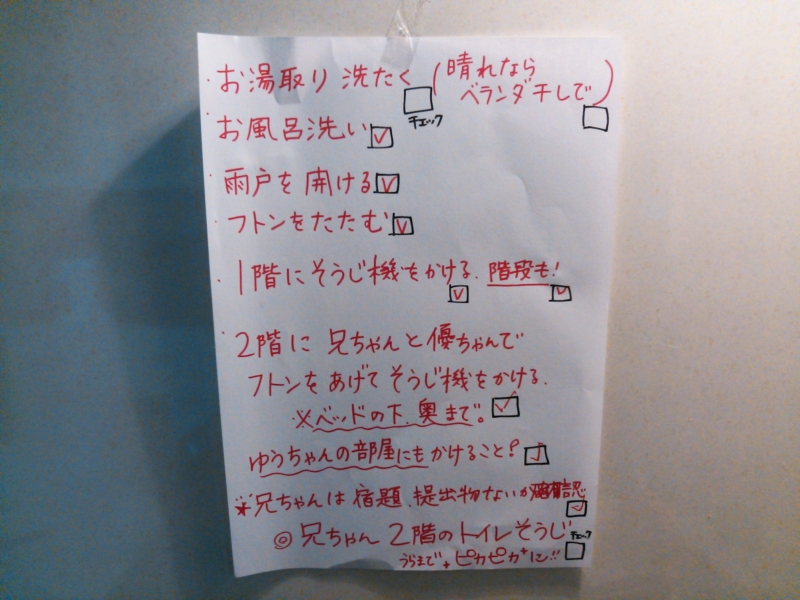 ・お湯取り 洗たく (晴れなら
ベランダ干しで)
チェック
・お風呂洗い
・雨戸を開ける
・フトンをたたむ
・1階にそうじ機をかける. 階段も!
・2階に 兄ちゃんと優ちゃんで
フトンをあげてそうじ機をかける.
※ベッドの下.奥まで。
ゆうちゃんの部屋にもかけること!
※兄ちゃんは宿題、提出物ないか確認
◎兄ちゃん 2階のトイレそうじ
チェック
うらまで ピカピカに!!